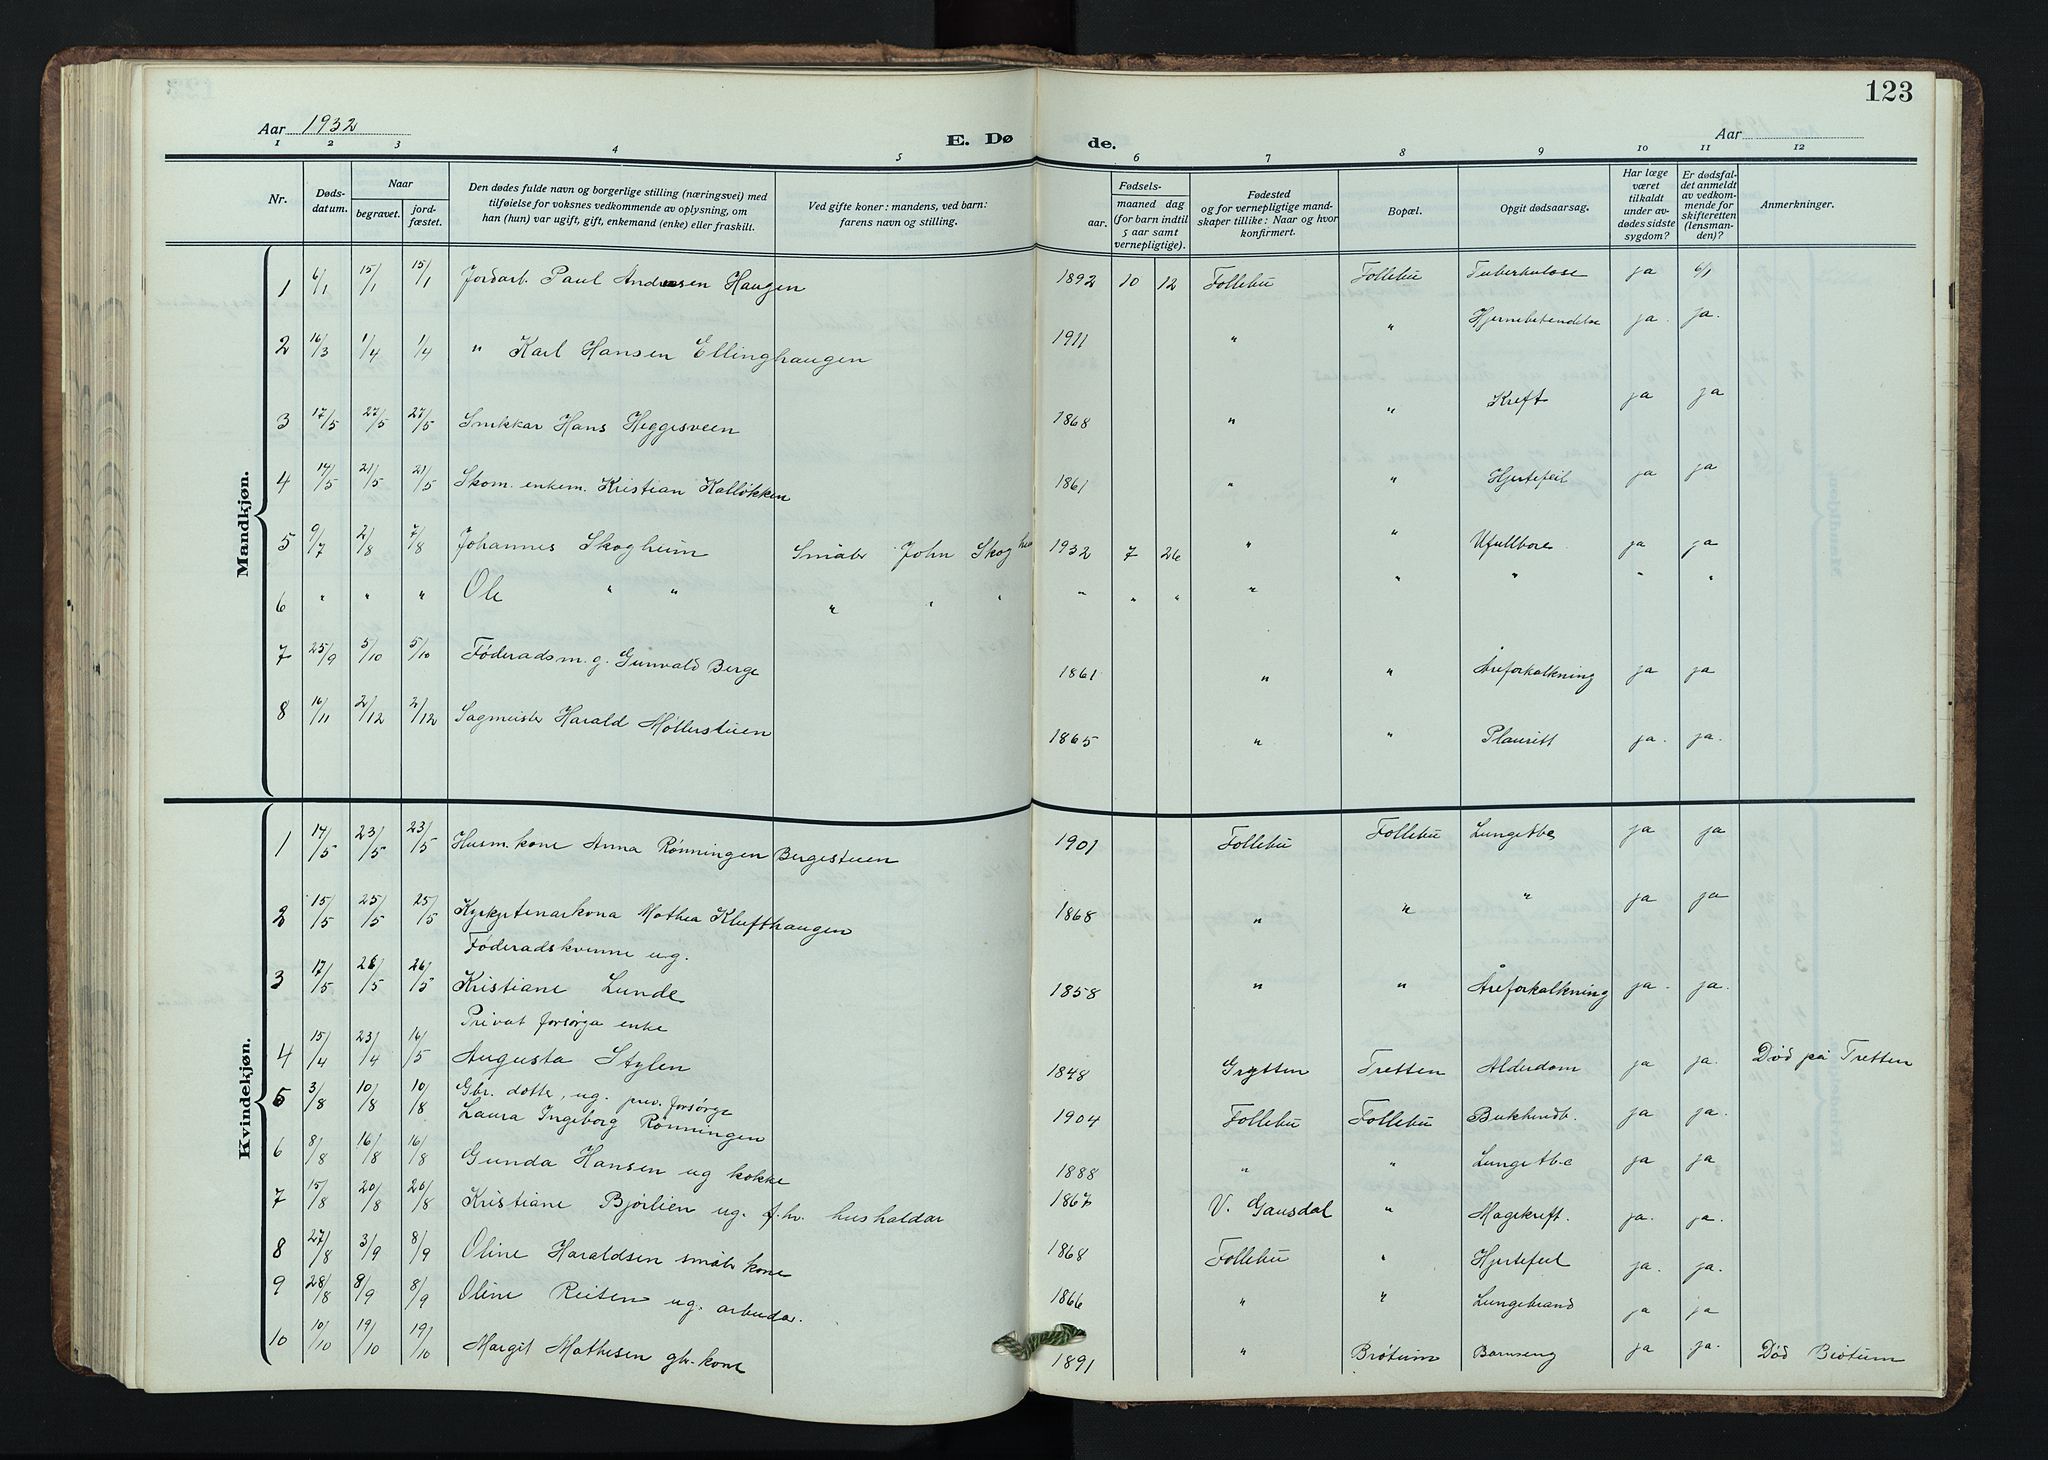 123
Aar 1932 E. Dø de. Aar
1 2 3 4 5 6 7 8 9 10 11 12
Nr. Døds-datum. Naar begravet. jord-fæstet. Den dødes fulde navn og borgerlige stilling (næringsvei) med tilføielse for voksnes vedkommende av oplysning, om han (hun) var ugift, gift, enkemand (enke) eller fraskilt. Ved gifte koner: mandens, ved barn: farens navn og stilling. Fødsels- aar. maaned dag (for barn indtil 5 aar samt vernepligtige). Fødested og for vernepligtige mand-skaper tillike: Naar og hvor konfirmert. Bopæl. Opgit dødsaarsag. Har læge været tilkaldt under av-dødes sidste sygdom? Er dødsfal-det anmeldt av vedkom-mende for skifteretten (lensman-den)? Anmerkninger.
Mandkjøn.
1 6/1 15/1 15/1 Jordarb. Paul Andresen Haugen 1892 10 12 Follebu Follebu Tuberkulose ja 6/1
2 16/3 1/4 1/4 " Karl Hansen Ellinghaugen 1911 " " Hjernebetendelse ja. ja.
3 17/5 27/5 27/5 Snikkar Hans Heggesveen 1868 " " Kreft ja ja
4 14/5 21/5 21/5 Skom. enkem. Kristian Kalløkken 1861 " " Hjertefeil ja ja
5 9/7 2/8 7/8 Johannes Skogheim Småbr John Skogheim 1932 7 26 " " Ufullbore ja ja
6 " " " Ole " " " " " " " " " " " " "
7 25/9 5/10 5/10 Føderadsm. g. Gunvald Berge 1861 " " Åreforkalkning ja ja
8 16/11 2/12 2/12 Sagmeister Harald Møllerstuen 1865 " " Plauritt ja. ja.
Kvindekjøn.
1 14/5 23/5 23/5 Husm. kone Anna Rønningen Bergestuen 1901 Follebu Follebu Lungetbc ja ja
2 15/5 25/5 25/5 Kyrkjetenarkona Mathea Klufthaugen 1868 " " " ja ja
Føderadskvinne ug.
3 17/5 26/5 26/5 Kristiane Lunde 1858 " " Åreforkalkning ja. ja.
Privat forsørga enke
4 15/4 23/4 16/5 Augusta Stylen 1848 Grytten Tretten Alderdom ja ja. Død på Tretten
Gbr. dotter, ug. priv. forsørge
5 3/8 10/8 10/8 Laura Ingeborg Rønningen 1904 Follebu Follebu Bukhindb. ja ja.
6 8/8 16/8 16/8 Gunda Hansen ug kokke 1888 " " Lungetbc ja ja
7 15/8 20/8 20/8 Kristiane Bjørlien ug. f.hv. husholdar 1867 V. Gausdal " Magekreft. ja. ja.
8 27/8 3/9 8/9 Oline Haraldsen småbr kone 1868 Follebu " Hjertefeil ja. ja.
9 28/8 8/9 8/9 Oline Reisen ug. arbeidar. 1866 " " Lungebrand ja ja
10 10/10 19/10 19/10 Margit Mathisen gbr. kone 1891 " Brøtum Barnseng ja ja. Død Brøtum